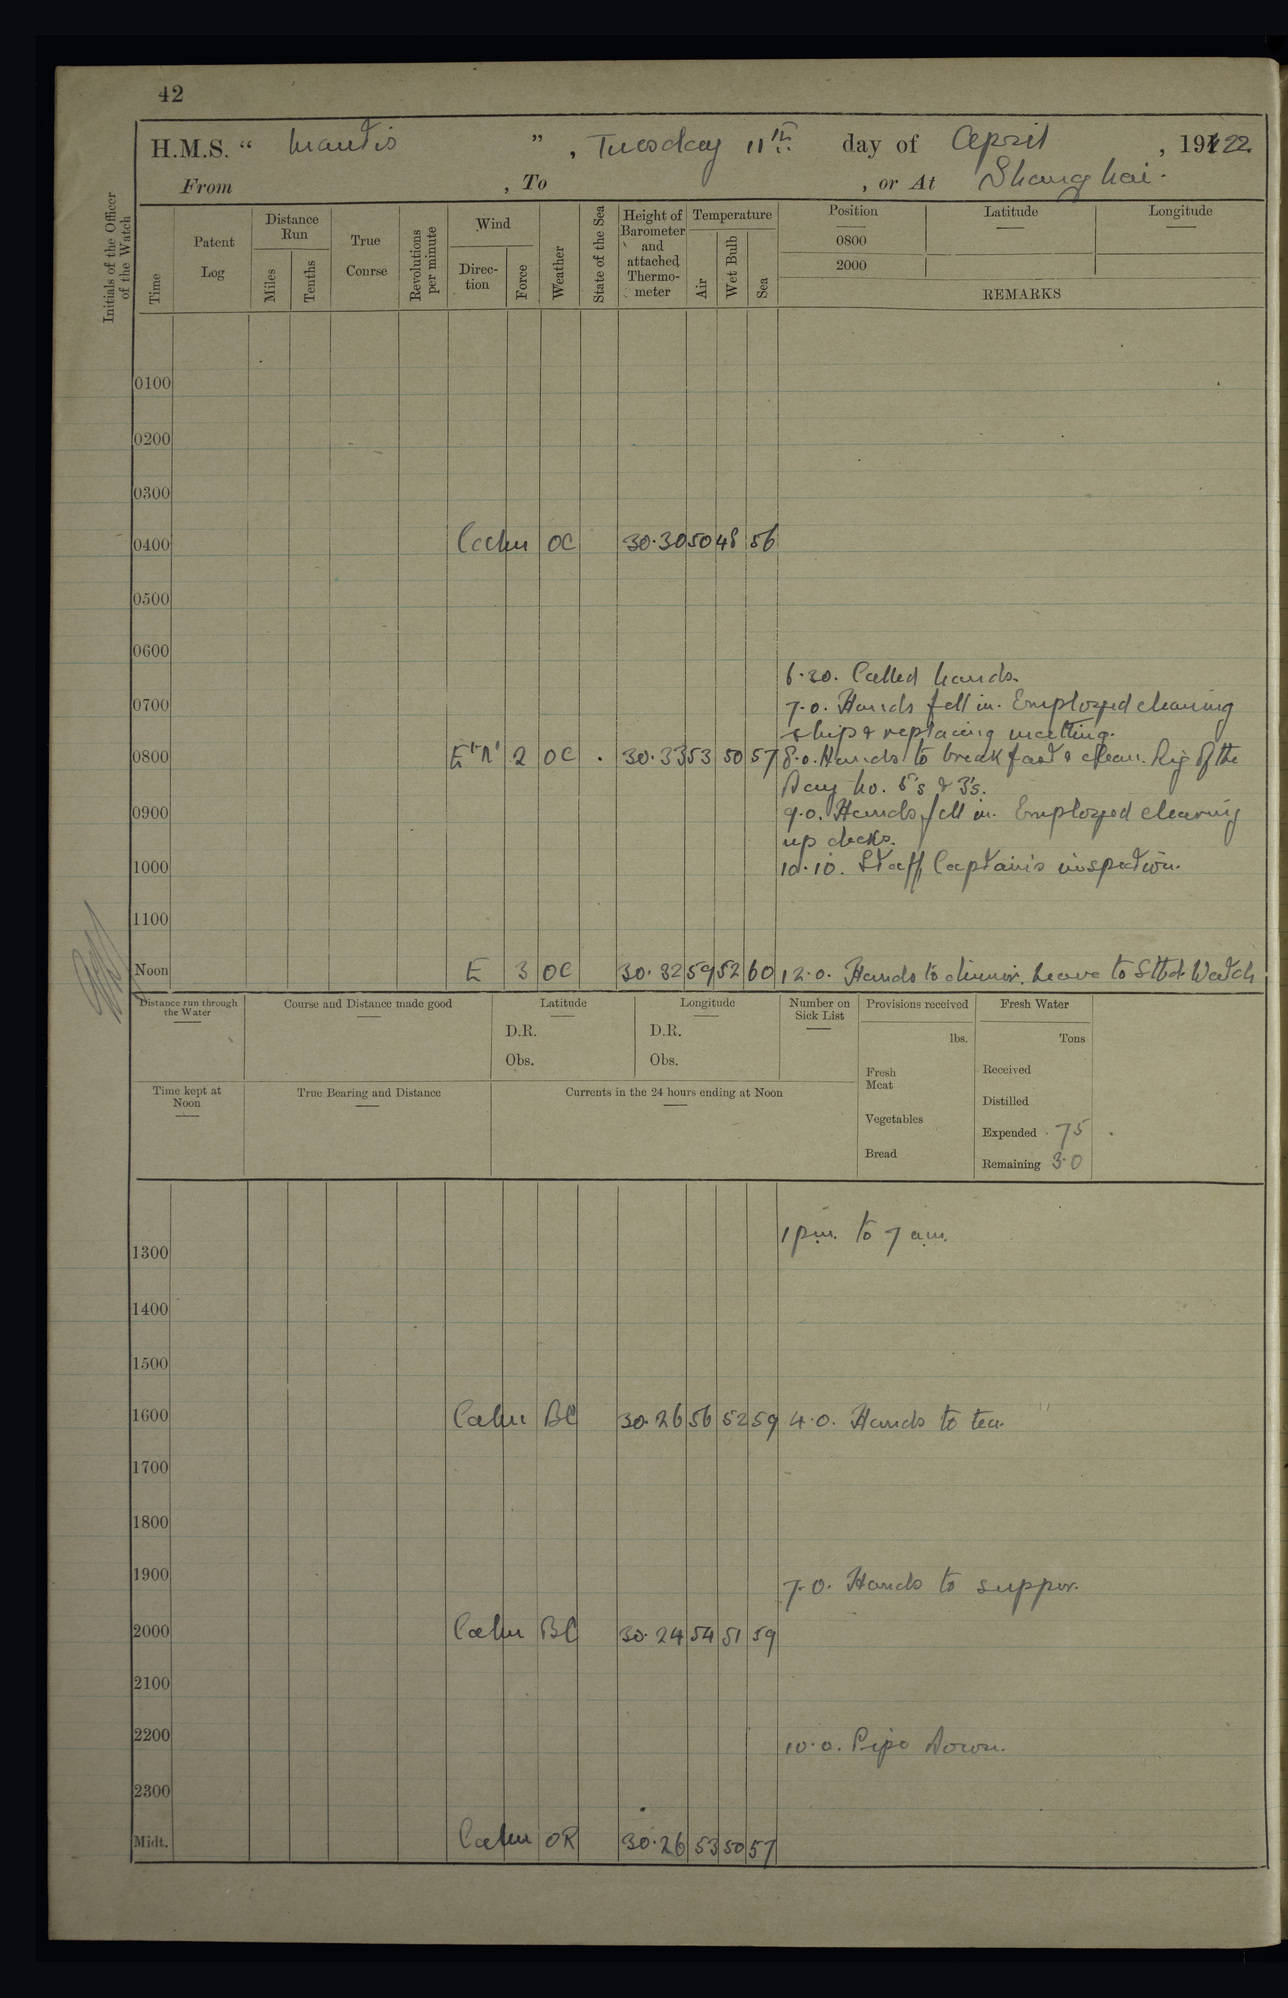 42
H.M.S. “ Mantis ” , Tuesday 11th day of April , 191 22
From , To , or At Shanghai.
Initials of the Officer of the Watch
Time
Patent Log
Distance Run
Miles
Tenths
True Course
Revolutions per minute
Wind
Direc-tion
Force
Weather
State of the Sea
Height of Barometer and attached Thermo-meter
Temperature
Air
Wet Bulb
Sea
Position
Latitude
Longitude
0800
2000
REMARKS
0100
0200
0300
0400 Calm OC 30.30 50 48 56
0500
0600
6.30. Called hands.
0700 7.0. Hands fell in. Employed cleaning
ship & replacing matting.
0800 E'N' 2 OC 30.33 53 50 57 8.0. Hands to breakfast & clean. Rig of the
Day No. 5's & 3's.
0900 9.0. Hands fell in. Employed clearing
up decks.
1000 10.10. Staff Captain's inspection.
1100
Noon E 3 OC 30.32 59 52 60 12.0. Hands to dinner. Leave to Stbd Watch
Distance run through the Water
Course and Distance made good
Latitude
D.R.
Obs.
Longitude
D.R.
Obs.
Number on Sick List
Provisions received
lbs.
Fresh Meat
Vegetables
Bread
Fresh Water
Tons
Received
Distilled
Expended .75
Remaining 3.0
Time kept at Noon
True Bearing and Distance
Currents in the 24 hours ending at Noon
1 p.m. to 7 a.m.
1300
1400
1500
1600 Calm BC 30.26 56 52 59 4.0. Hands to tea.
1700
1800
1900 7.0. Hands to supper.
2000 Calm BC 30.24 54 51 59
2100
2200 10.0. Pipe Down.
2300
Midt. Calm OR 30.26 53 50 57